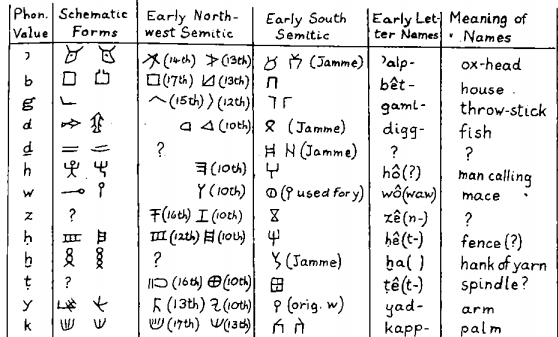 Phon. Value | Schematic Forms | Early North-west Semitic | Early South Semitic | Early Let-ter Names | Meaning of Names
ʾ (14th) (13th) (Jamme) ʾalp- ox-head
b (17th) (13th) bêt- house
g (15th) (12th) gaml- throw-stick
d (10th) (Jamme) digg- fish
ḏ ? (Jamme) ? ?
h (10th) hô(?) man calling
w (10th) (used for y) wô(waw) mace
z ? (16th) (10th) zê(n-) ?
ḥ (12th) (10th) ḥê(t-) fence (?)
ḫ ? (Jamme) ḫa( ) hank of yarn
ṭ ? (16th) (10th) ṭê(t-) spindle?
y (13th) (10th) (orig. w) yad- arm
k (17th) (13th) kapp- palm